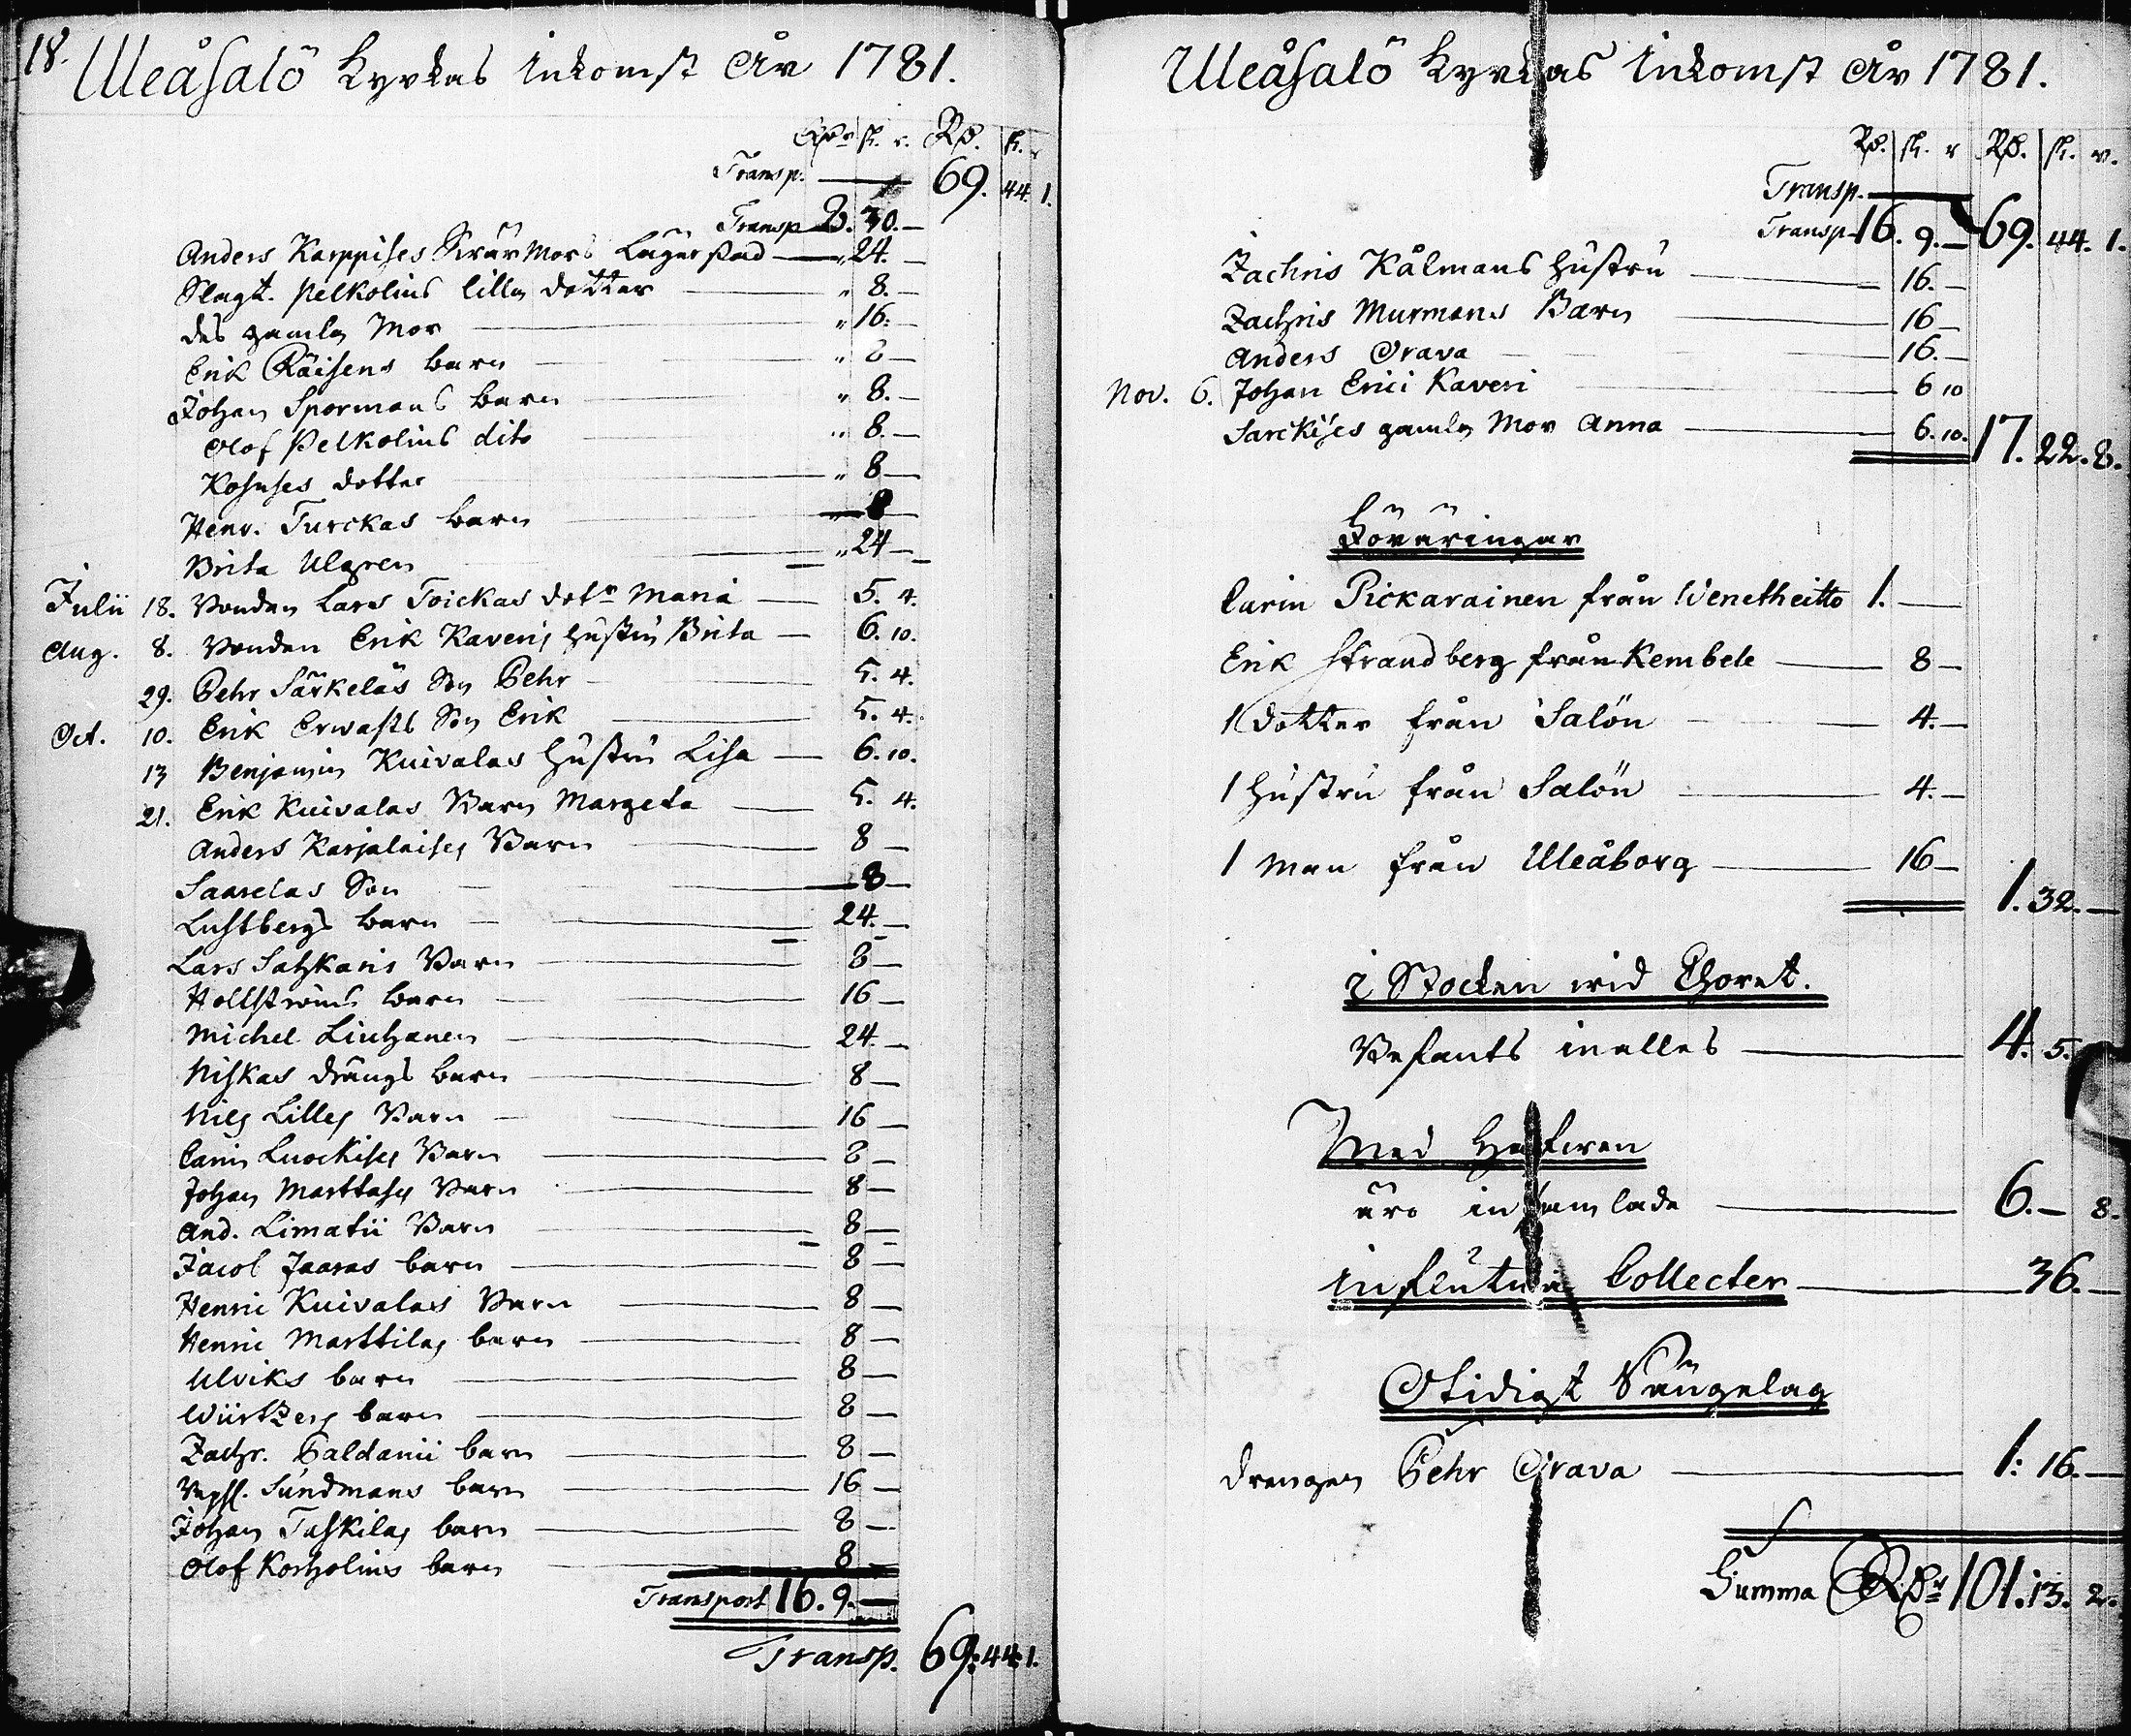 18.
Uleåsalö Kyrkas Inkomst År 1781.
Rdr sk. r. Rd. sk. r
Transp. — 69. 44. 1.
Transp 8. 30. —
Anders Karppises Svär Mors Lägerstad — " 24. —
Slagt. Pelkolins lilla dotter — " 8. —
des gamla Mor — " 16. —
Erik Räisens barn — " 8 —
Johan Spormans barn — " 8. —
Olof Pelkolins dito — " 8. —
Kosuses dotter — " 8 —
Henr. Turckas barn — " 8 —
Brita Ulgren — " 24 —
Julii 18. Bonden Lars Toickas dotr Maria — 5. 4.
Aug. 8. Bonden Erik Kaveris hustru Brita — 6. 10.
29. Pehr Särkeläs Son Pehr — 5. 4.
Oct. 10. Erik Erwasts Son Erik — 5. 4.
13 Benjamin Kuivalas Hustru Lisa — 6. 10.
21. Erik Kuivalas Barn Margeta — 5. 4.
Anders Karjalaises Barn — 8 —
Saarelas Son — 8 —
Lustbergs barn — 24. —
Lars Satzkaris Barn — 8 —
Hollströms barn — 16 —
Michel Liuhanen — 24. —
Niskas drängs barn — 8 —
Nils Lilles Barn — 16 —
Carin Luockises Barn — 8 —
Johan Marttases Barn — 8 —
And. Limatii Barn — 8 —
Jacob Jaaras barn — 8 —
Henric Kuivalas Barn — 8 —
Henric Marttilas barn — 8 —
Ulviks barn — 8 —
Würtzens barn — 8 —
Zachr. Paldanii barn — 8 —
Sundmans barn — 16 —
Johan Taskilas barn — 8 —
Olof Korholins barn — 8 —
Transport 16. 9. —
Transp. 69:44:1.
Uleåsalö Kyrkas Inkomst År 1781.
Rd. sk. r Rd. sk. r.
Transp. —
Transp 16. 9. — 69. 44. 1.
Zachris Kålmans hustru — 16. —
Zachris Murmans Barn — 16 —
Anders Orava — 16. —
Nov. 6. Johan Erici Kaveri — 6 10
Sarckises gamla Mor Anna — 6. 10. 17. 22. 8.
Föräringar
Carin Pickarainen från Wenetheitto 1. —
Erik Strandberg från Kembele — 8 —
1 Dotter från Salön — 4. —
1 Hustru från Salön — 4. —
1 Man från Uleåborg — 16 —
1. 32. —
i Stocken wid Choret.
Befants inalles — 4. 5.
Med Hafwen
äro insamlade — 6. — 8.
influtna Collecter — 36. —
Otidigt Sängelag
Drengen Pehr Orava — 1: 16. —
Summa Rdr 101. 13. 2.